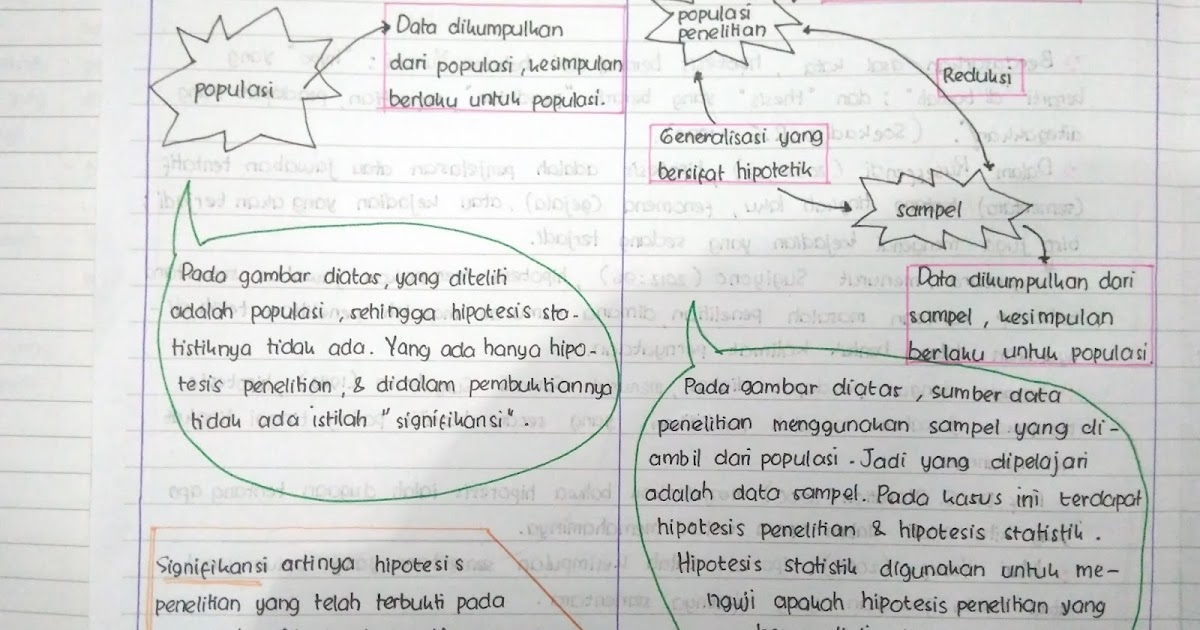 populasi
Data dikumpulkan
dari populasi, kesimpulan
berlaku untuk populasi.
Pada gambar diatas, yang diteliti
adalah populasi, sehingga hipotesis sta-
tistiknya tidak ada. Yang ada hanya hipo-
tesis penelitian, & didalam pembuktiannya
tidak ada istilah "signifikansi".
Signifikansi artinya hipotesis
penelitian yang telah terbukti pada
populasi
penelitian
Reduksi
Generalisasi yang
bersifat hipotetik
sampel
Data dikumpulkan dari
sampel, kesimpulan
berlaku untuk populasi.
Pada gambar diatas, sumber data
penelitian menggunakan sampel yang di-
ambil dari populasi. Jadi yang dipelajari
adalah data sampel. Pada kasus ini terdapat
hipotesis penelitian & hipotesis statistik.
Hipotesis statistik digunakan untuk me-
nguji apakah hipotesis penelitian yang